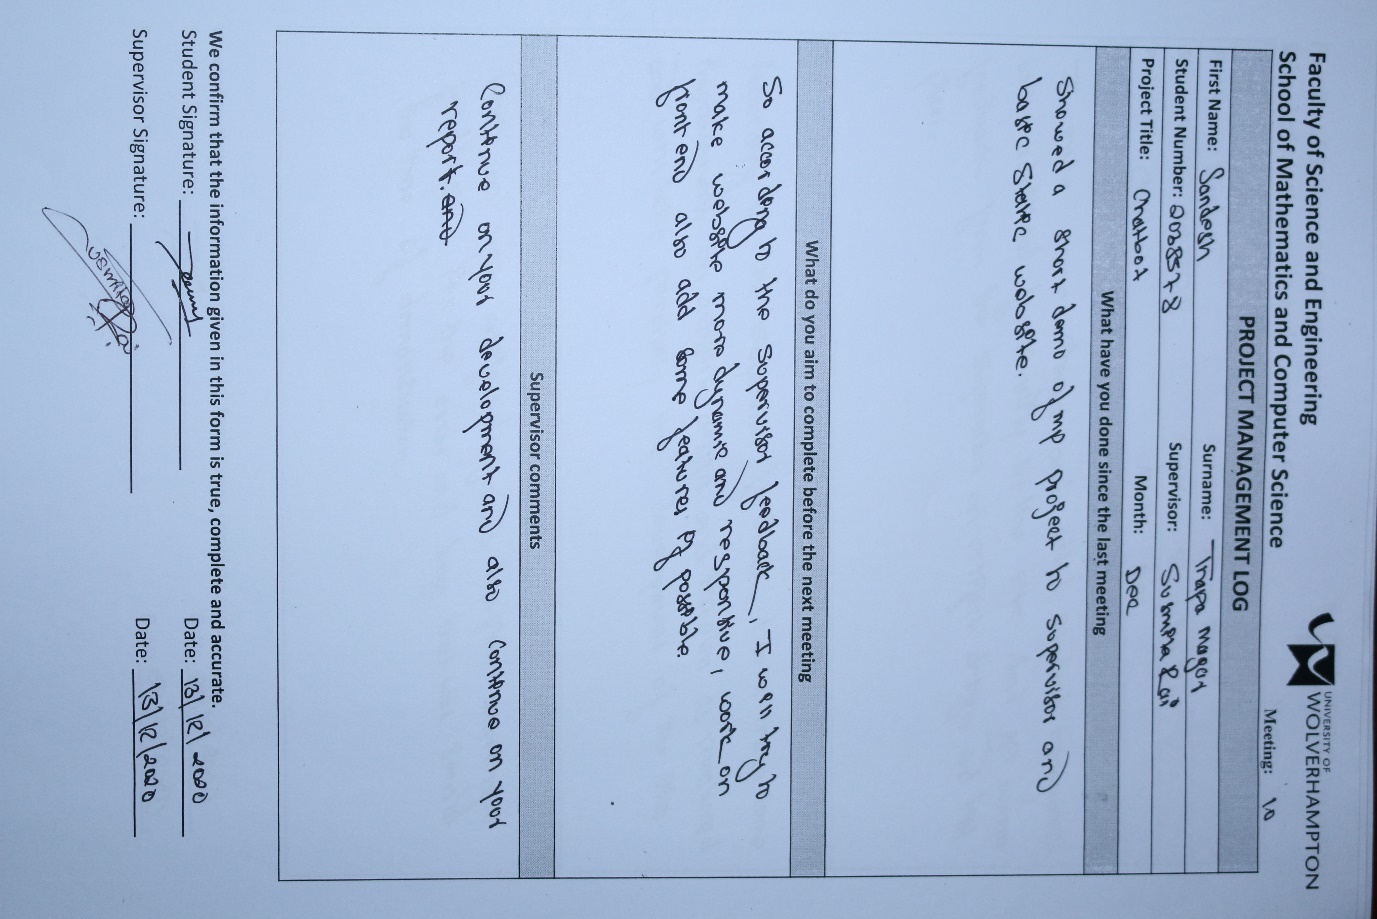 Faculty of Science and Engineering
School of Mathematics and Computer Science
UNIVERSITY OF
WOLVERHAMPTON
Meeting: 10
PROJECT MANAGEMENT LOG
First Name: Sandesh Surname: Thapa Magar
Student Number: 2038578 Supervisor: Susmita Rai
Project Title: Chatbot Month: Dec
What have you done since the last meeting
Showed a short demo of my project to supervisor and
basic static website.
What do you aim to complete before the next meeting
So according to the supervisor feedback, I will try to
make website more dynamic and responsive, work on
front end also add some features if possible.
Supervisor comments
Continue on your development and also continue on your
report. and
We confirm that the information given in this form is true, complete and accurate.
Student Signature: Date: 13/12/2020
Supervisor Signature: Date: 13/12/2020